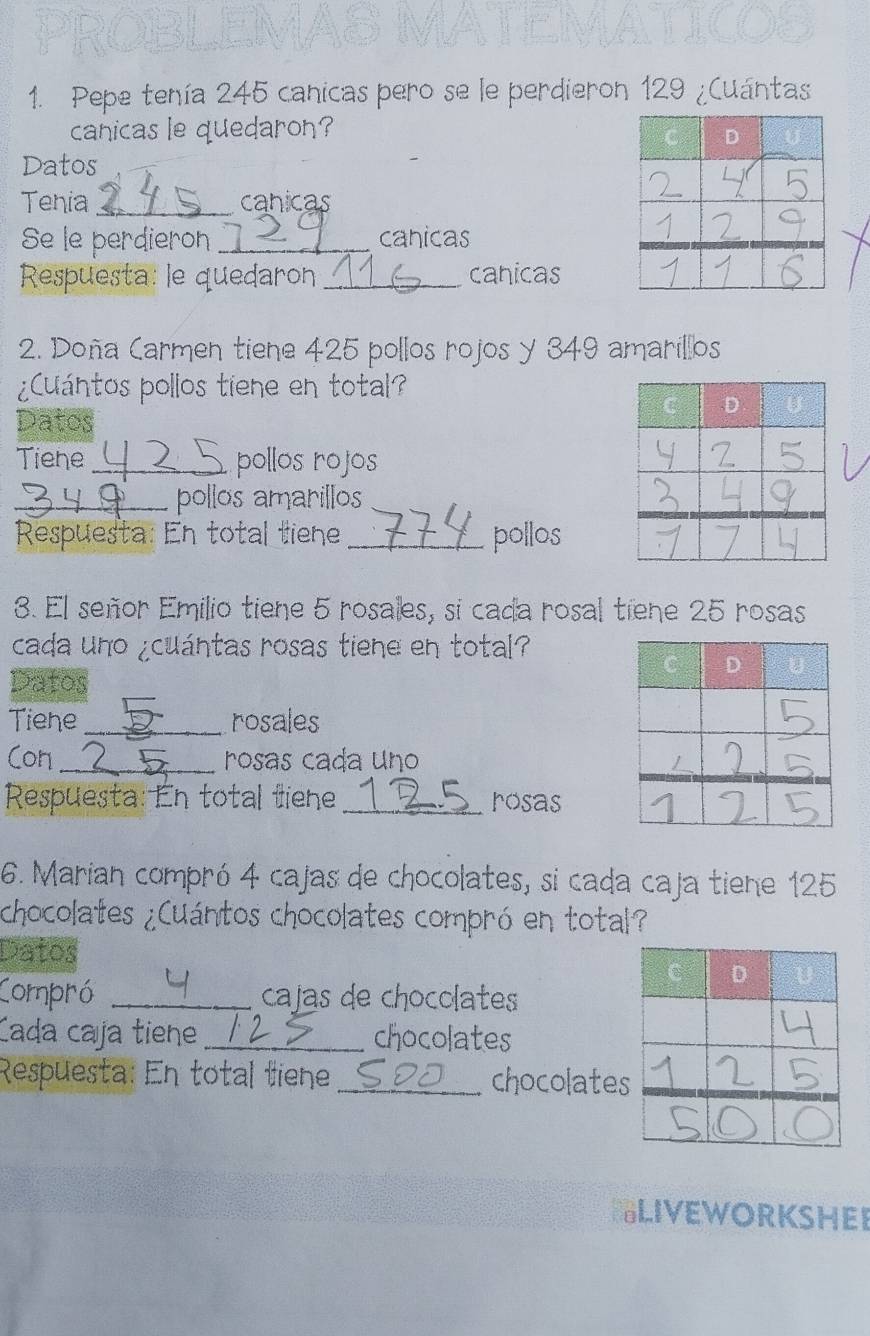 PROBLEMAS MATEMATICOS
1. Pepe tenía 245 canicas pero se le perdieron 129 ¿Cuántas
canicas le quedaron?
Datos
Tenia 245 canicas
Se le perdieron 129 canicas
Respuesta: le quedaron 116 canicas
C D U
2 4 5
1 2 9
1 1 6
2. Doña Carmen tiene 425 pollos rojos y 349 amarillos
¿Cuántos pollos tiene en total?
Datos
Tiene 425 pollos rojos
349 pollos amarillos
Respuesta: En total tiene 774 pollos
C D U
4 2 5
3 4 9
7 7 4
3. El señor Emilio tiene 5 rosales, si cada rosal tiene 25 rosas
cada uno ¿cuántas rosas tiene en total?
Datos
Tiene 5 rosales
Con 25 rosas cada uno
Respuesta: En total tiene 125 rosas
C D U
5
2 5
1 2 5
6. Marian compró 4 cajas de chocolates, si cada caja tiene 125
chocolates ¿Cuántos chocolates compró en total?
Datos
Compró 4 cajas de chocolates
Cada caja tiene 125 chocolates
Respuesta: En total tiene 500 chocolates
C D U
4
1 2 5
5 0 0
LIVEWORKSHEE